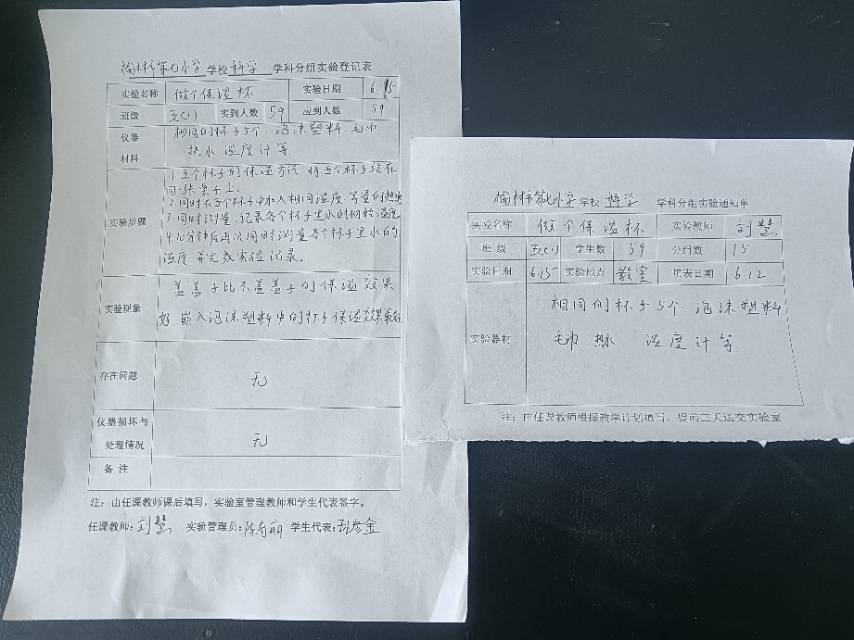 榆林市第七小学 学校 科学 学科分组实验登记表
实验名称 做个保温杯 实验日期 6.15
班级 五(1) 实到人数 59 应到人数 59
仪器材料 相同的杯子5个 泡沫塑料 毛巾
热水 温度计等
实验步骤 1.五个杯子的保温方法,将五个杯子放在
同一张桌子上。
2.同时在5个杯子中加入相同温度、等量的热水
3.同时测量、纪录各个杯子里水的初始温度
4.10分钟后再次同时测量各个杯子里水的
温度并完成实验记录。
实验现象 盖盖子比不盖盖子的保温效果
好,嵌入泡沫塑料中的杯子保温效果最好
存在问题 无
仪器损坏与处理情况 无
备注
注:由任课教师课后填写,实验室管理教师和学生代表签字。
任课教师:刘慧 实验管理员: 学生代表:
榆林市第七小学 学校 科学 学科分组实验通知单
实验名称 做个保温杯 实验教师 刘慧
班级 五(1) 学生数 59 分组数 15
实验日期 6.15 实验地点 教室 填表日期 6.12
实验器材 相同的杯子5个 泡沫塑料
毛巾 热水 温度计等
注:由任课教师根据教学计划填写,提前三天送交实验室